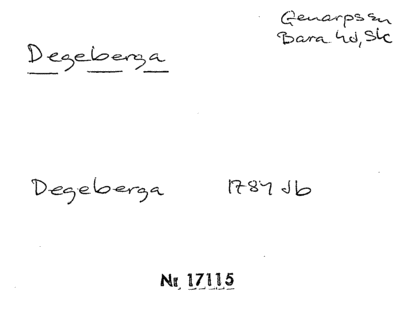 Genarps sn
Bara hd, Sk
Degeberga
Degeberga 1784 Jb
Nr 17115